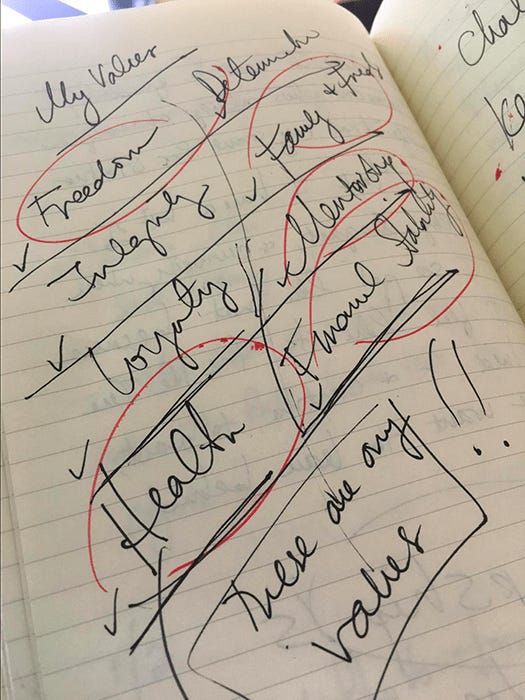 My Values
Freedom
Integrity
Loyalty
Health
Family + Frieds
Mentorship
Financial Stability
These are my
values
!!
Chal
Ke